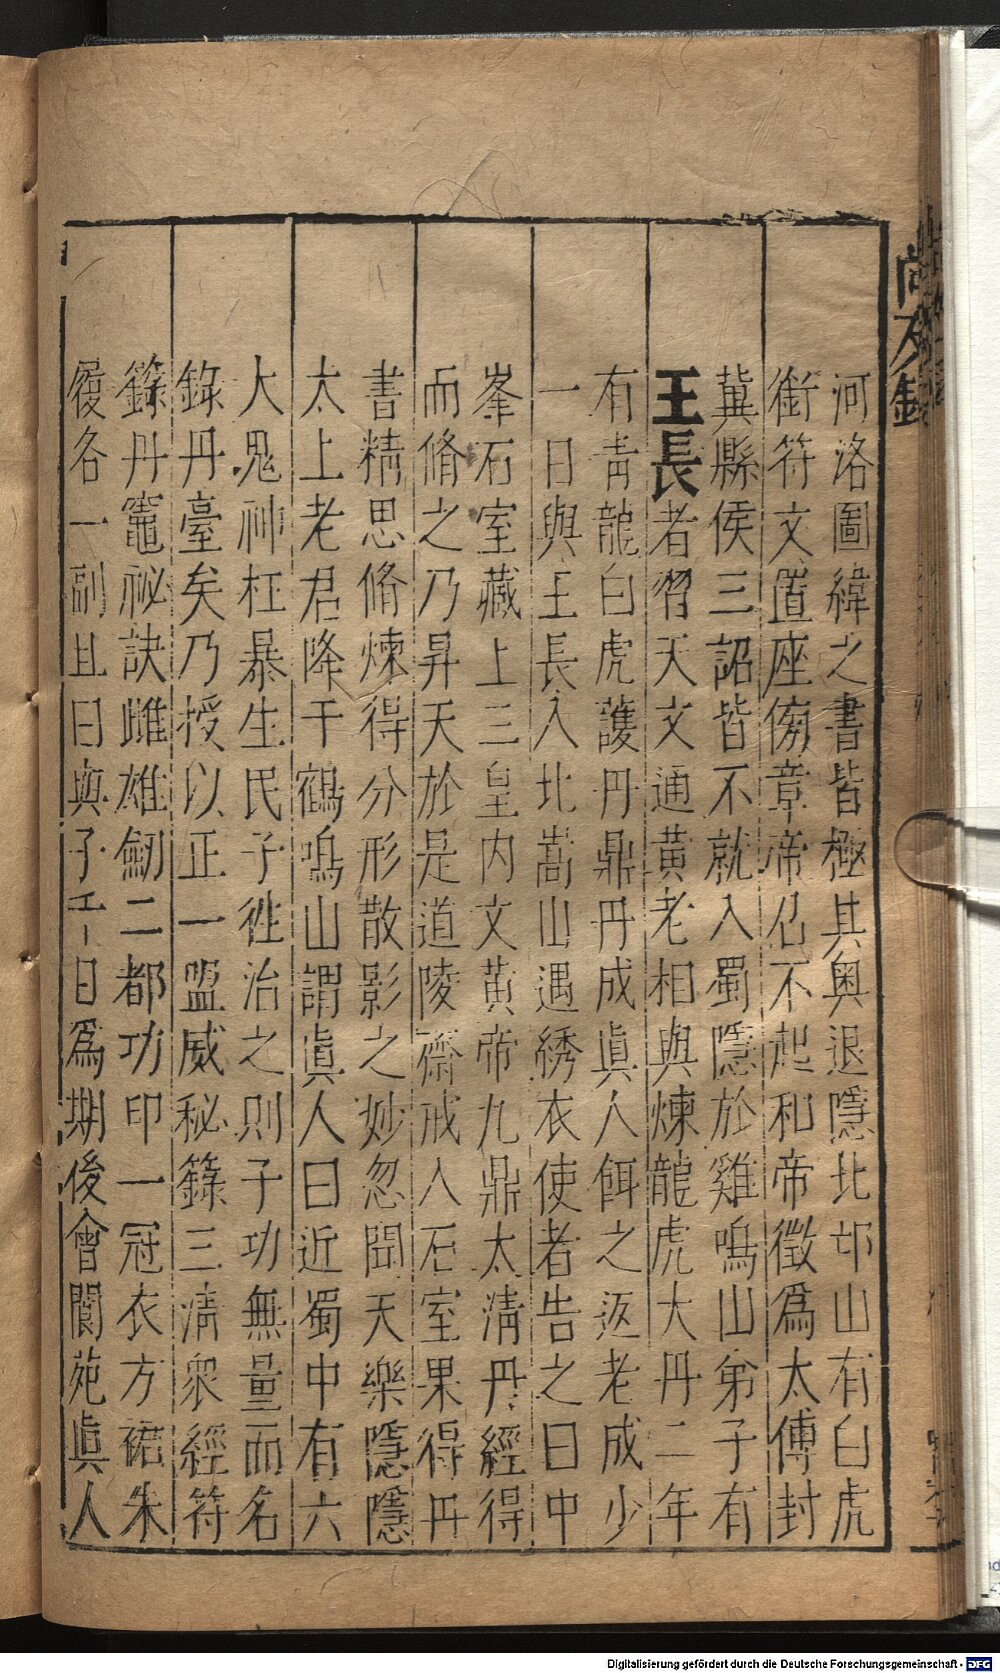 河洛圖緯之書皆極其奧退隱北邙山有白虎
銜符文置座傍章帝召不起和帝徵爲太傅封
冀縣侯三詔皆不就入蜀隱於雞鳴山弟子有
王長者習天文通黃老相與煉龍虎大丹二年
有青龍白虎護丹鼎丹成眞人餌之返老成少
一日與王長入北嵩山遇綉衣使者告之曰中
峯石室藏上三皇内文黃帝九鼎太清丹經得
而脩之乃昇天於是道陵齋戒入石室果得丹
書精思脩煉得分形散影之妙忽聞天樂隱隱
太上老君降于鶴鳴山謂眞人曰近蜀中有六
大鬼神枉暴生民子徃治之則子功無量而名
錄丹臺矣乃授以正一盟威秘籙三清衆經符
籙丹竈祕訣雌雄劒二都功印一冠衣方裙朱
履各一副且曰與子千日爲期後會閬苑眞人
Digitalisierung gefördert durch die Deutsche Forschungsgemeinschaft - DFG